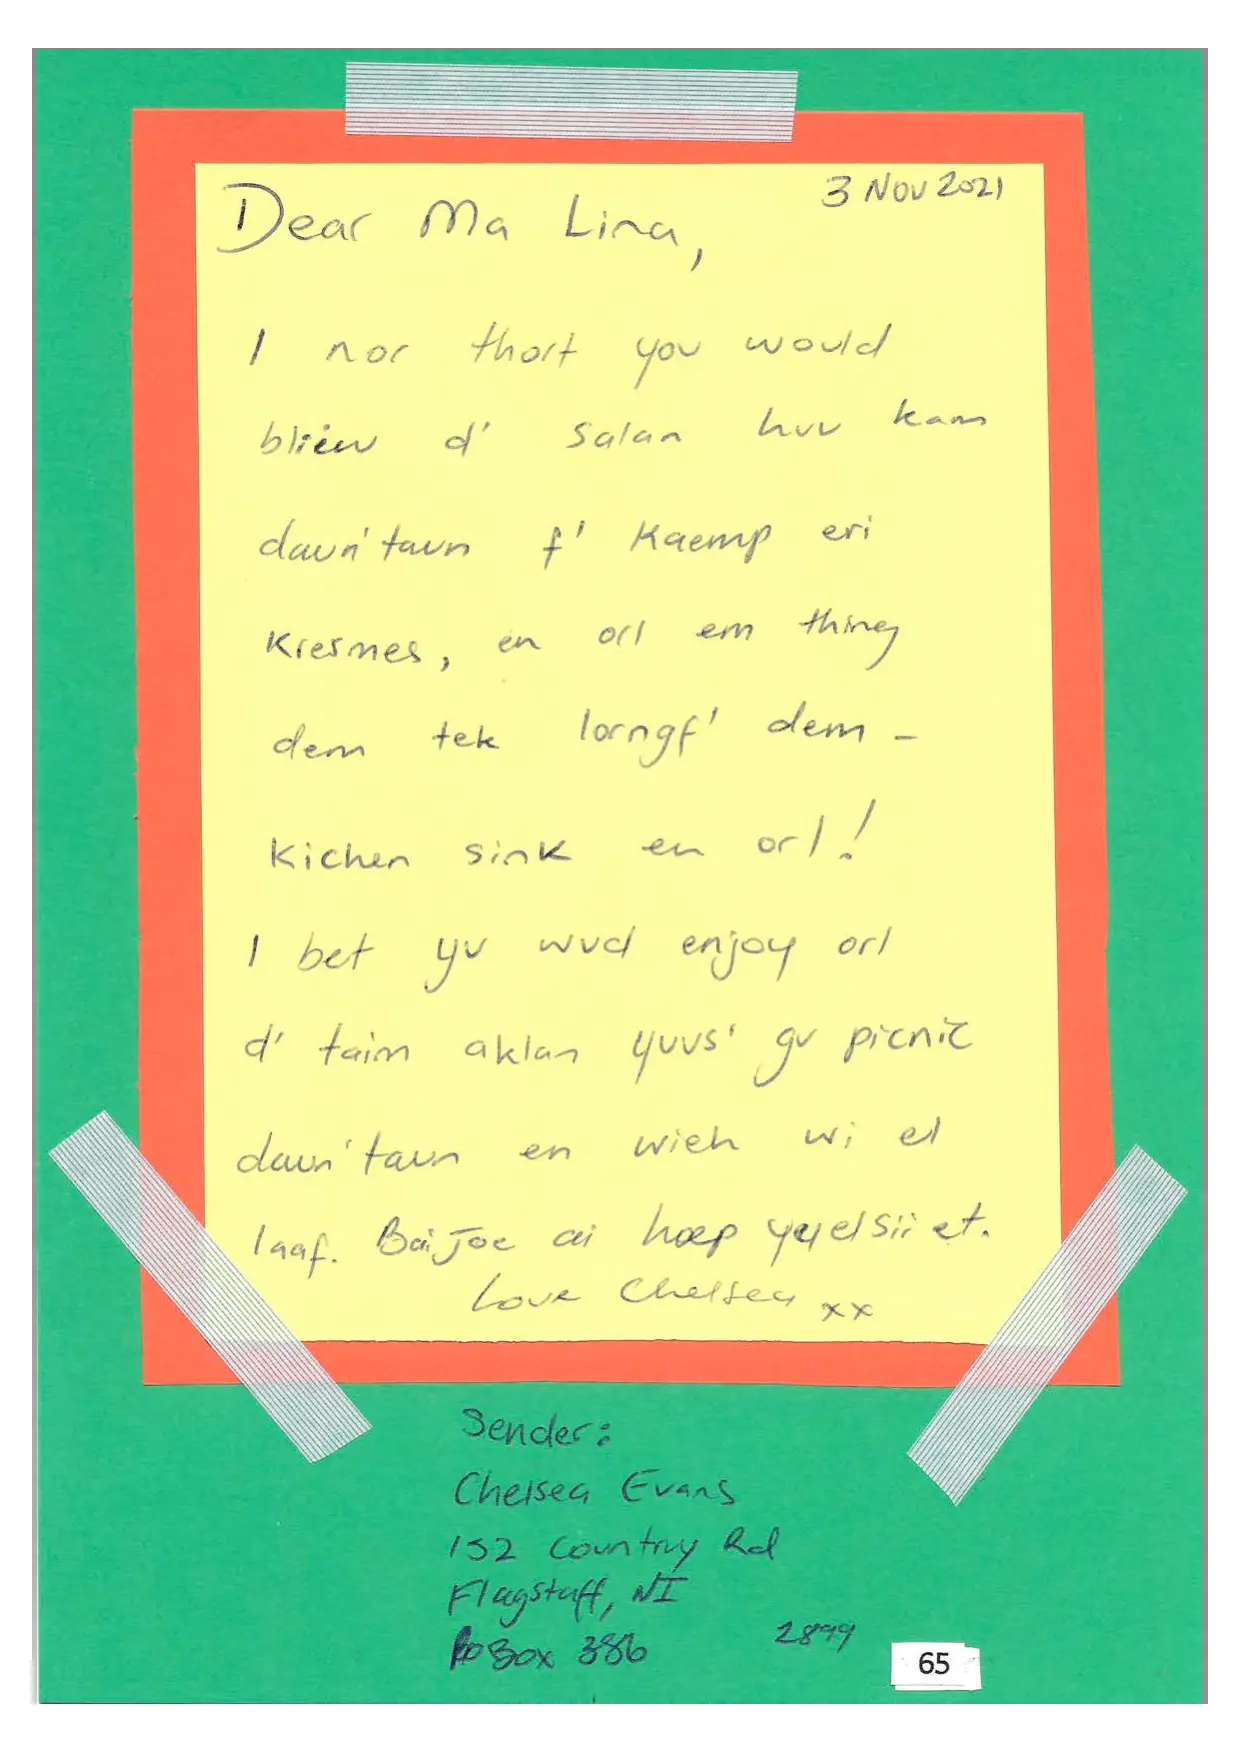 3 Nov 2021
Dear Ma Lina,
I nor thort you would
bliew d' salan huu kam
daun'taun f' Kaemp eri
Kresmes, en orl em thing
dem tek lorngf' dem -
Kichen sink en orl!
I bet yu wud enjoy orl
d' taim aklan yuus' gu picnic
daun'taun en wieh wi el
laaf. Bai Joe ai hoep yu el sii et.
Love Chelsea xx
Sender:
Chelsea Evans
152 Country Rd
Flagstaff, NI
Po Box 386 2899
65